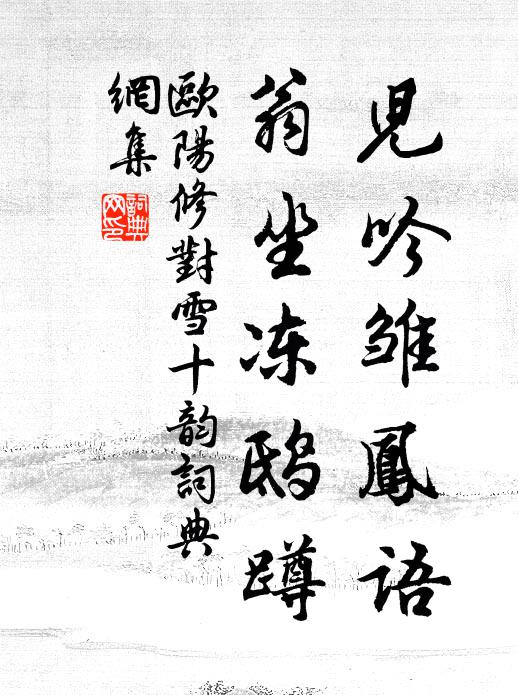 兒吟雏鳳語
翁坐冻鴟蹲
歐陽修對雪十韵詞典
網集
詞典
网印